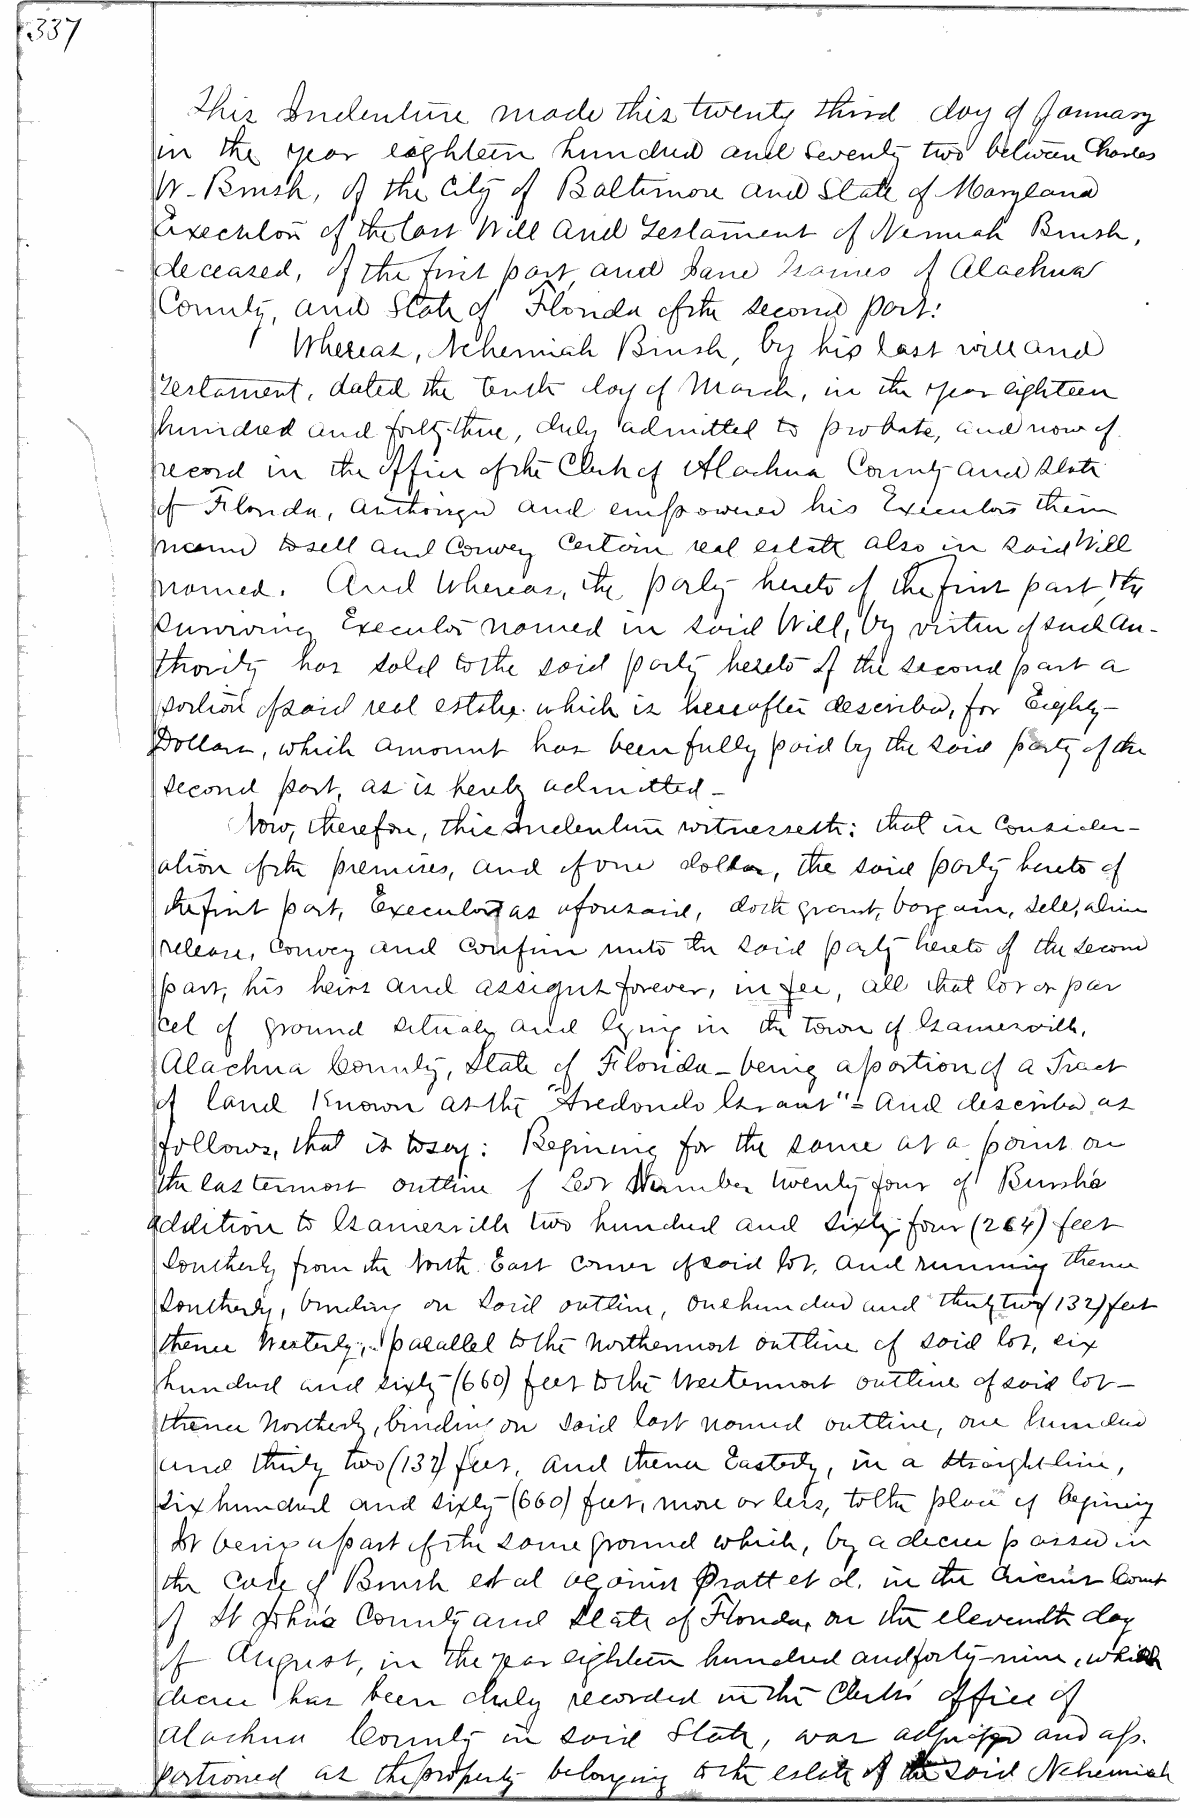 337
This Indenture made this twenty third day of January
in the year eighteen hundred and seventy two between Charles
W. Brush, of the City of Baltimore and State of Maryland
Executor of the last Will and Testament of Nemiah Brush,
deceased, of the first part, and Jane of Alachua
County, and State of Florida of the second part:
Whereas, Nehemiah Brush, by his last will and
Testament, dated the tenth day of March, in the year eighteen
hundred and forty-three, duly admitted to probate, and now of
record in the office of the Clerk of Alachua County and State
of Florida, authorized and empowered his Executors therin
named to sell and convey certain real estate also in said Will
named. And Whereas, the party hereto of the first part, the
surviving Executor named in said Will, by virtue of such au-
thority has sold to the said party hereto of the second part a
portion of said real estate which is hereafter described, for Eighty
Dollars, which amount has been fully paid by the said party of the
second part, as is hereby admitted-
Now, therefore, this Indenture witnesseth: that in consider-
ation of the premises, and of one dollar, the said party hereto of
the first part, Executor as aforesaid, doth grant, bargain, sell, alien
release, convey and confirm unto the said party hereto of the second
part, his heirs and assigns forever, in fee, all that lot or par
cel of ground situate and lying in the town of Gainesville,
Alachua County, State of Florida - being a portion of a Tract
of land Known as the "Aredondo Grant" = And described as
follows, that is to say: Begining for the same at a point on
the eastermost outline of Lot Number twenty four of Brush's
addition to Gainesville two hundred and sixty-four (264) feet
Southerly from the North East corner of said lot, and running thence
Southerly, binding on said outline, one hundred and thirty two (132) feet
thence Westerly, parallel to the Northermost outline of said lot, six
hundred and sixty (660) feet to the Westermost outline of said lot -
thence Northerly, binding on said last named outline, one hundred
and thirty two (132) feet, and thence Easterly, in a straight line,
six hundred and sixty (660) feet, more or less, to the place of begining
It being a part of the same ground which, by a decree passed in
the case of Brush et al against Pratt et al. in the Circuit Court
of St John's County and State of Florida, on the eleventh day
of August, in the year eighteen hundred and forty-nine, which
decree has been duly recorded in the Clerk's office of
Alachua County in said State, was adjudged and ap-
portioned as the property belonging to the estate of the said Nehemiah